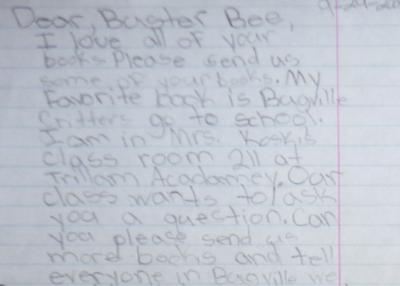 Dear, Buster Bee,
I love all of your
books Please send us
some of your books. My
Favorite book is Bugville
Critters go to school.
I am in Mrs.
class room 211 at
Trillam Acadamey. Our
class wants to ask
you a quection. Can
you please send us
more books and tell
everyone in Bugville we